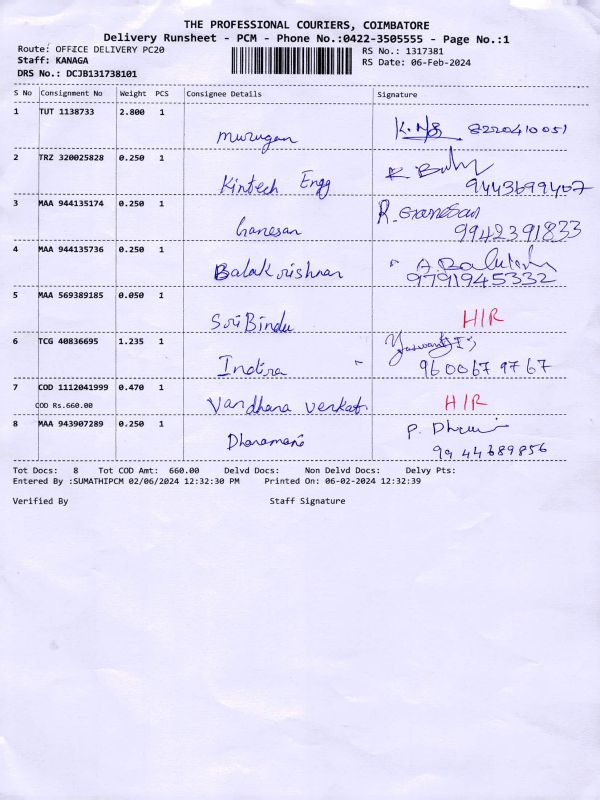 THE PROFESSIONAL COURIERS, COIMBATORE
Delivery Runsheet - PCM - Phone No.:0422-3505555 - Page No.:1
Route: OFFICE DELIVERY PC20 RS No.: 1317381
Staff: KANAGA RS Date: 06-Feb-2024
DRS No.: DCJB131738101
S No Consignment No Weight PCS Consignee Details Signature
1 TUT 1138733 2.800 1
Murugan 8220410051
2 TRZ 320025828 0.250 1
Kintech Engg 9443699407
3 MAA 944135174 0.250 1 R. Ganesan
Ganesan 9942391833
4 MAA 944135736 0.250 1
Balakrishnan 9791945332
5 MAA 569389185 0.050 1
Sri Bindu H/R
6 TCG 40836695 1.235 1
Indira 9600679767
7 COD 1112041999 0.470 1
COD Rs.660.00 Vandhana Venkat H/R
8 MAA 943907289 0.250 1
Dharamani 9944689856
Tot Docs: 8 Tot COD Amt: 660.00 Delvd Docs: Non Delvd Docs: Delvy Pts:
Entered By :SUMATHIPCM 02/06/2024 12:32:30 PM Printed On: 06-02-2024 12:32:39
Verified By Staff Signature